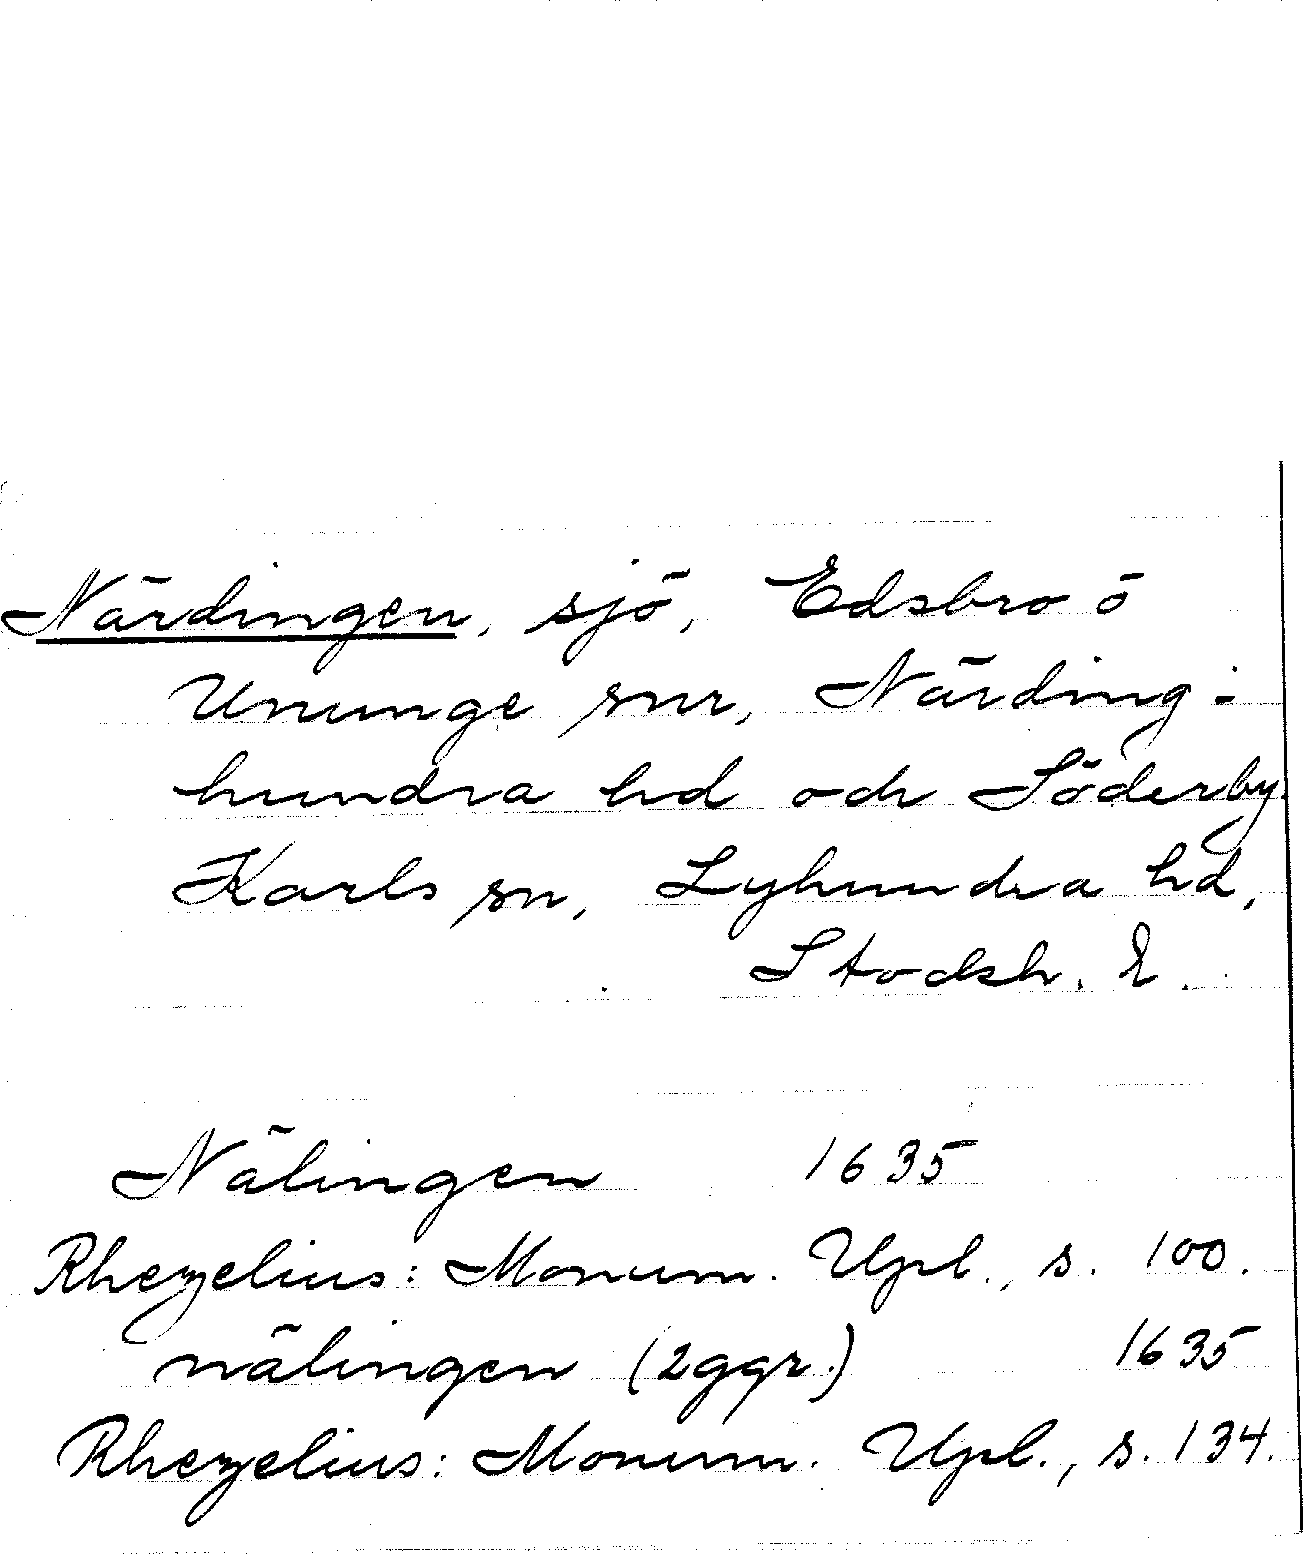 Närdingen, sjö, Edsbro o
Ununge snr, Närding-
hundra hd och Söderby-
Karls sn, Lyhundra hd,
Stocksh. l.
Nälingen 1635
Rhezelius: Monum. Upl., s. 100.
nälingen (2ggr.) 1635
Rhezelius: Monum. Upl., s. 134.